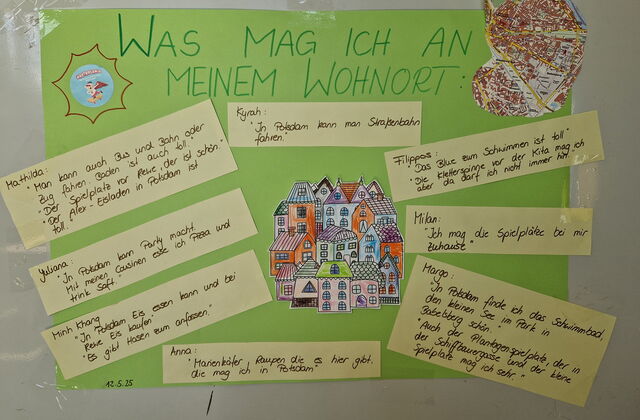 WAS MAG ICH AN
MEINEM WOHNORT:
Kyrah:
"In Potsdam kann man Straßenbahn
fahren."
Mathilda:
"Man kann auch Bus und Bahn oder
Zug fahren. Baden ist auch toll."
"Der Spielplatz vor Rewe, der ist schön."
"Der Alex-Eisladen in Potsdam ist
toll."
Filippos:
"Das Blue zum Schwimmen ist toll"
"Die Kletterspinne vor der Kita mag ich
aber da darf ich nicht immer hin"
Yuliana:
"In Potsdam kann Party macht.
Mit meinen Cousinen esse ich Pizza und
trink Saft."
Milan:
"Ich mag die Spielplätze bei mir
zuhause"
Minh Khang
"In Potsdam Eis essen kann und bei
Rewe Eis kaufen."
"Es gibt Hasen zum anfassen."
Margo:
"In Potsdam finde ich das Schwimmbad,
den kleinen See im Park in
Babelsberg schön."
"Auch der Plantagenspielplatz, der in
der Schiffbauergasse und der kleine
Spielplatz mag ich sehr."
Anna:
"Marienkäfer, Raupen die es hier gibt.
die mag ich in Potsdam"
12.5.25